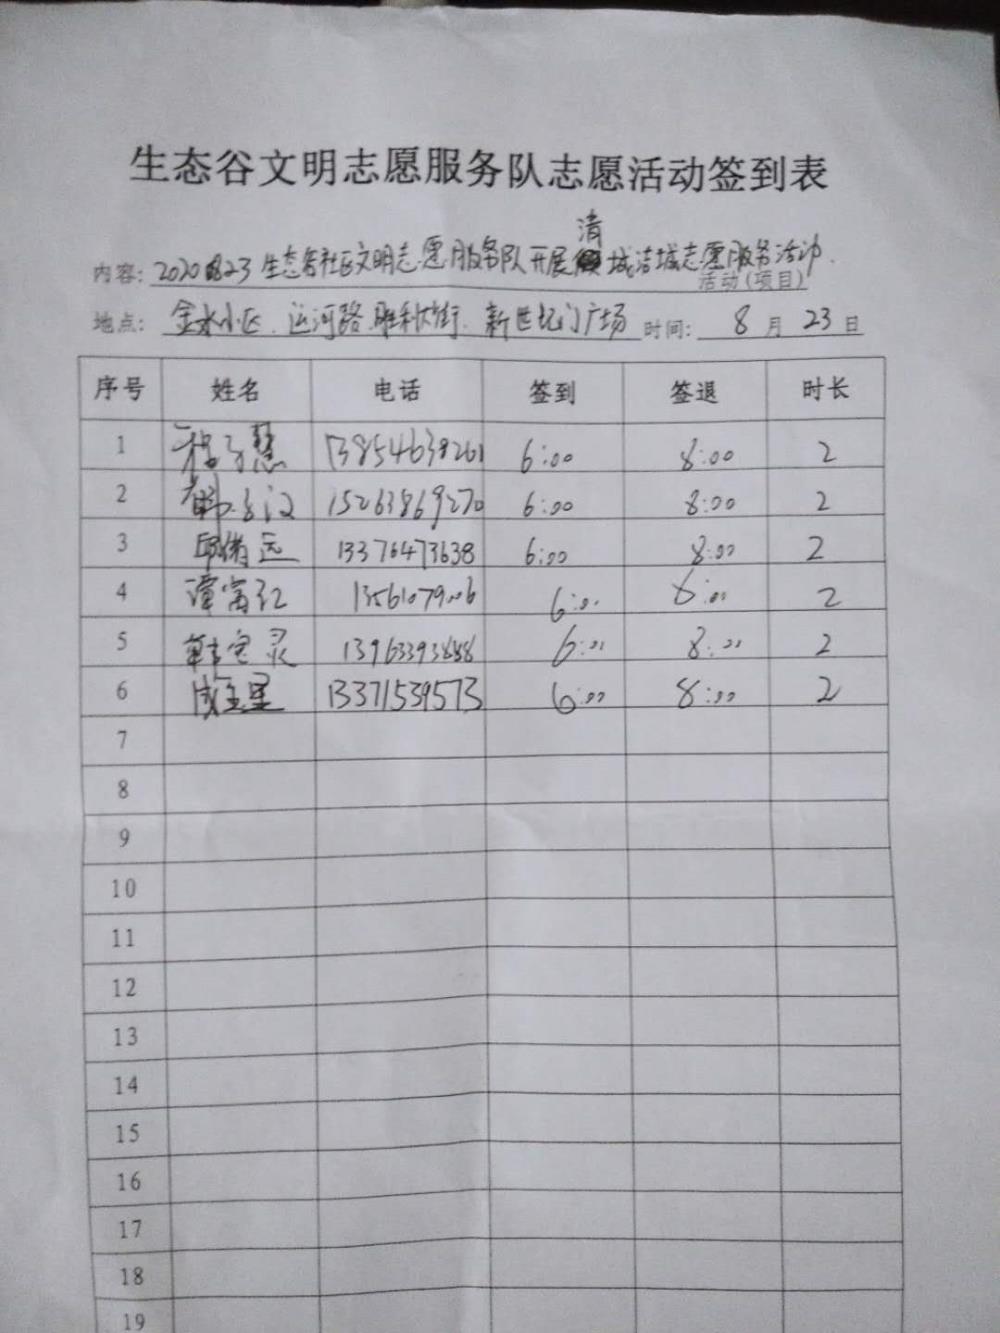 生态谷文明志愿服务队志愿活动签到表
内容: 2020 8.23 生态谷社区文明志愿服务队开展清城洁城志愿服务活动.
活动(项目)
地点: 金水小区、运河路 胜利大街、新世纪门广场 时间: 8 月 23 日
序号 姓名 电话 签到 签退 时长
1 程子慧 13854639261 6:00 8:00 2
2 韩 15263869270 6:00 8:00 2
3 邱 远 13376473638 6:00 8:00 2
4 谭富红 13561079006 6:00 8:00 2
5 韩宝灵 13963393888 6:00 8:00 2
6 成宝星 13371539573 6:00 8:00 2
7
8
9
10
11
12
13
14
15
16
17
18
19